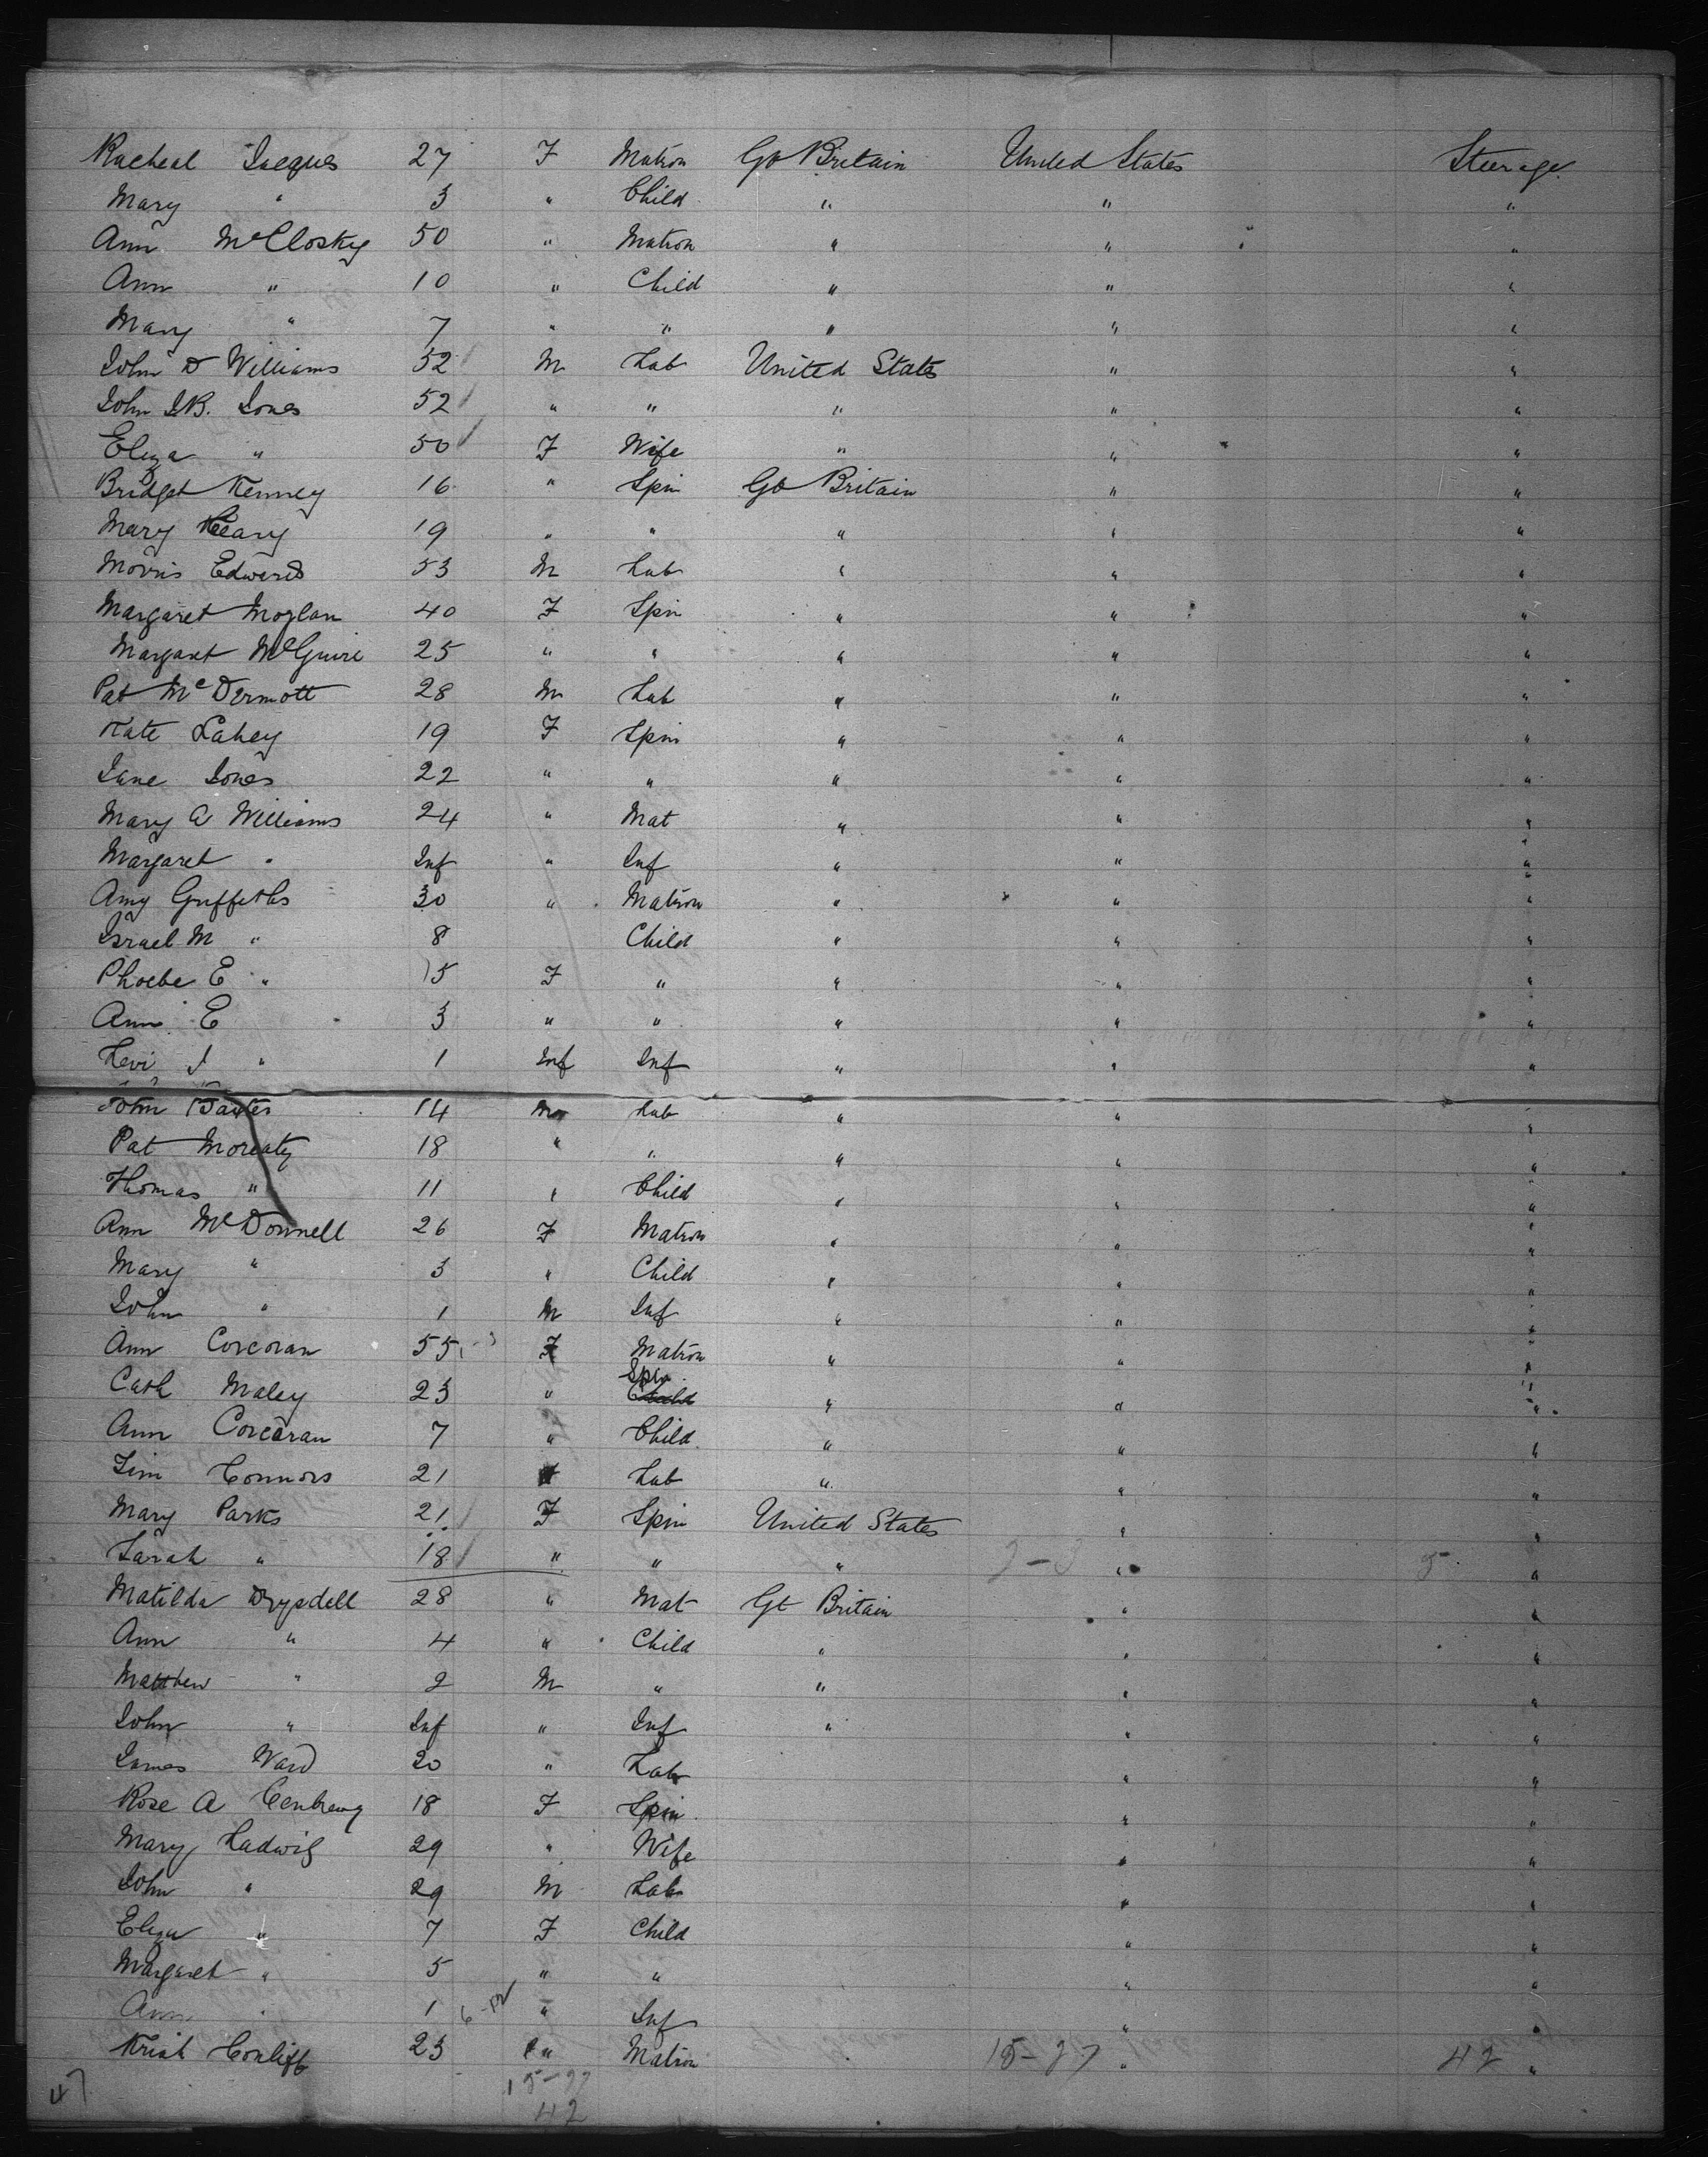 Racheal Jaeques 27 F Matron Gt Britain United States Steerage
Mary " 3 " Child " " "
Ann McCloskey 50 " Matron " " "
Ann " 10 " Child " " "
Mary " 7 " " " " "
John D Williams 52 M Lab United States " "
John J.B. Jones 52 " " " " "
Eliza " 50 F Wife " " "
Bridget Kenney 16 " Spin Gt Britain " "
Mary Keary 19 " " " " "
Morris Edwards 53 M Lab " " "
Margaret Moylan 40 F Spin " " "
Margaret McGuire 25 " " " " "
Pat McDermott 28 M Lab " " "
Kate Lahey 19 F Spin " " "
Jane Jones 22 " " " " "
Mary A Williams 24 " Mat " " "
Margaret " Inf " Inf " " "
Amy Griffeths 30 " Matron " " "
Israel M " 8 Child " " "
Phoebe E " 5 F " " " "
Ann E 3 " " " " "
Levi J " 1 Inf Inf " " "
John Baxter 14 M Lab " " "
Pat Moreaty 18 " " " " "
Thomas " 11 " Child " " "
Ann McDonnell 26 F Matron " " "
Mary " 3 " Child " " "
John " 1 M Inf " " "
Ann Corcoran 55 F Matron " " "
Cath Maley 23 " Spin Child " " "
Ann Corcoran 7 " Child " " "
Tim Connors 21 Lab " " "
Mary Parks 21 F Spin United States " "
Sarah " 18 " " " 2-3 " 5 "
Matilda Drysdell 28 " Mat Gt Britain " "
Ann " 4 " Child " " "
Matthew " 2 M " " " "
John " Inf " Inf " " "
James Ward 20 " Lab " "
Rose A 18 F Spin " "
Mary Ladwig 29 " Wife " "
John " 29 M Lab " "
Eliza " 7 F Child " "
Margaret " 5 " " " "
Ann " 1 " Inf " "
Conliff 23 " Matron 15-27 " 42 "
47 15-27
42